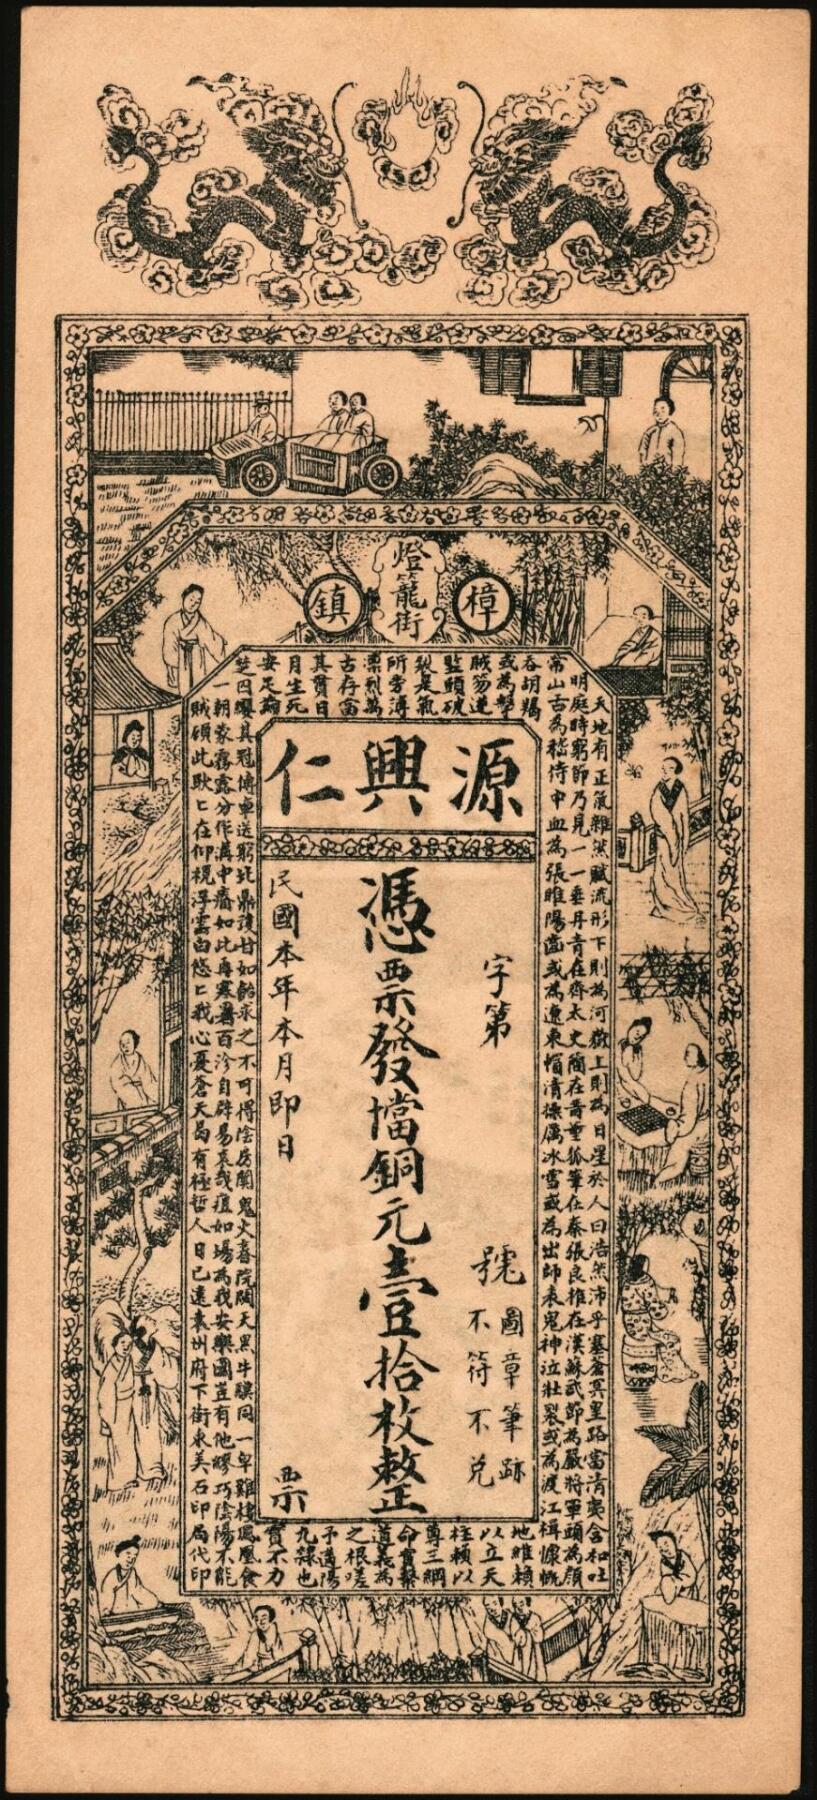 樟鎮
燈籠街
源興仁
字第
號
圖章筆跡
不符不兌
憑票發當銅元壹拾枚整
民國本年本月即日
票
天地有正氣雜然賦流形下則為河嶽上則為日星於人曰浩然沛乎塞蒼冥皇路當清夷含和吐
明庭時窮節乃見一一垂丹青在齊太史簡在晉董狐筆在秦張良椎在漢蘇武節為嚴將軍頭為顏
常山古為嵇侍中血為張睢陽齒或為遼東帽清操厲冰雪或為出師表鬼神泣壯裂或為渡江楫慷慨
吞胡羯
或為擊
賊笏逆
豎頭破
裂是氣
所旁薄
凜烈萬
古存當
其貫日
月生死
安足論
地維賴
以立天
柱賴以
尊三綱
命實繫
道義為
之根嗟
予遘陽
九隸也
實不力
楚囚纓其冠傳車送窮北鼎鑊甘如飴求之不可得陰房闃鬼火春院閟天黑牛驥同一皁雞棲鳳凰食
一朝蒙霧露分作溝中瘠如此再寒暑百沴自辟易哀哉疽如場為我安樂國豈有他繆巧陰陽不能
賊顧此耿々在仰視浮雲白悠々我心憂蒼天曷有極哲人日已遠袁州府下街東美石印局代印